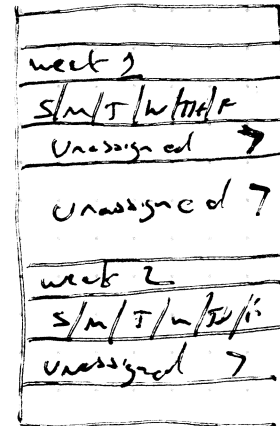 week 2
S/M/T/W/TH/F
Unassigned >
Unassigned >
week 2
S/M/T/W/TH/F
Unassigned >